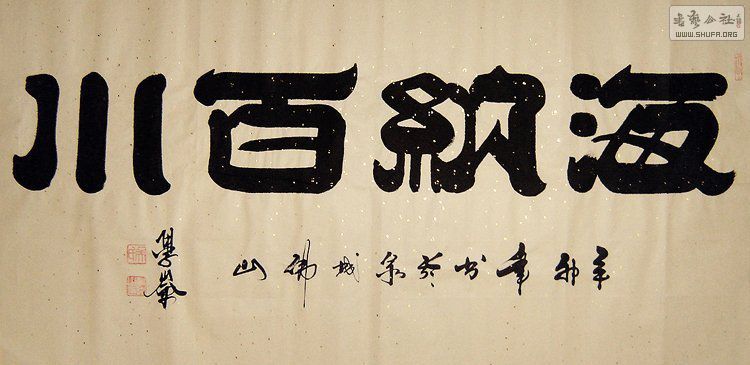 書藝公社
WWW.SHUFA.ORG
海納百川
辛卯年书於泉城佛山